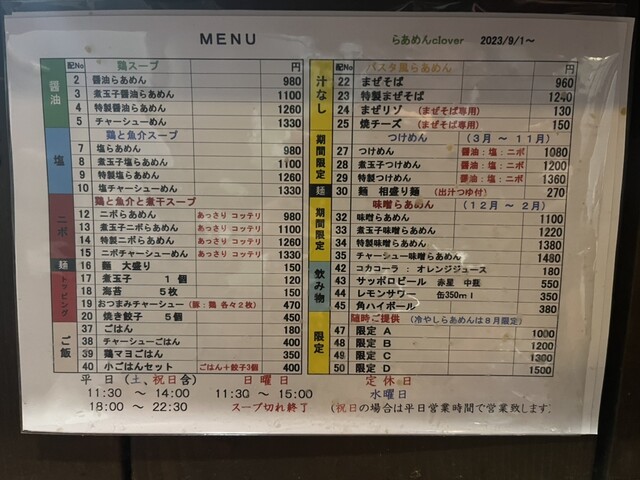 MENU らあめんclover 2023/9/1~
醤油
配No 鶏スープ 円
2 醤油らあめん 980
3 煮玉子醤油らあめん 1100
4 特製醤油らあめん 1260
5 チャーシューめん 1330
塩
鶏と魚介スープ
7 塩らあめん 980
8 煮玉子塩らあめん 1100
9 特製塩らあめん 1260
10 塩チャーシューめん 1330
ニボ
鶏と魚介と煮干スープ
12 ニボらあめん あっさり コッテリ 980
13 煮玉子ニボらあめん あっさり コッテリ 1100
14 特製ニボらあめん あっさり コッテリ 1260
15 ニボチャーシューめん あっさり コッテリ 1330
麺 16 麺 大盛り 150
トッピング
17 煮玉子 1個 120
18 海苔 5枚 150
19 おつまみチャーシュー (豚:鶏 各々2枚) 470
20 焼き餃子 5個 450
ご飯
37 ごはん 180
38 チャーシューごはん 400
39 鶏マヨごはん 350
40 小ごはんセット ごはん+餃子3個 400
汁なし
配No パスタ風らあめん 円
22 まぜそば 960
23 特製まぜそば 1240
24 まぜリゾ (まぜそば専用) 130
25 焼チーズ (まぜそば専用) 150
期間限定
つけめん (3月 ~ 11月)
27 つけめん 醤油:塩:ニボ 1080
28 煮玉子つけめん 醤油:塩:ニボ 1200
29 特製つけめん 醤油:塩:ニボ 1360
麺 30 麺 相盛り麺 (出汁つゆ付) 270
期間限定
味噌らあめん (12月 ~ 2月)
32 味噌らあめん 1100
33 煮玉子味噌らあめん 1220
34 特製味噌らあめん 1380
35 チャーシュー味噌らあめん 1480
飲み物
42 コカコーラ : オレンジジュース 180
43 サッポロビール 赤星 中瓶 550
44 レモンサワー 缶350ml 350
45 角ハイボール 380
限定
随時ご提供 (冷やしらあめんは8月限定)
47 限定 A 1000
48 限定 B 1200
49 限定 C 1300
50 限定 D 1500
平日(土、祝日含) 日曜日 定休日
11:30 ~ 14:00 11:30 ~ 15:00 水曜日
18:00 ~ 22:30 スープ切れ終了 (祝日の場合は平日営業時間で営業致します。)